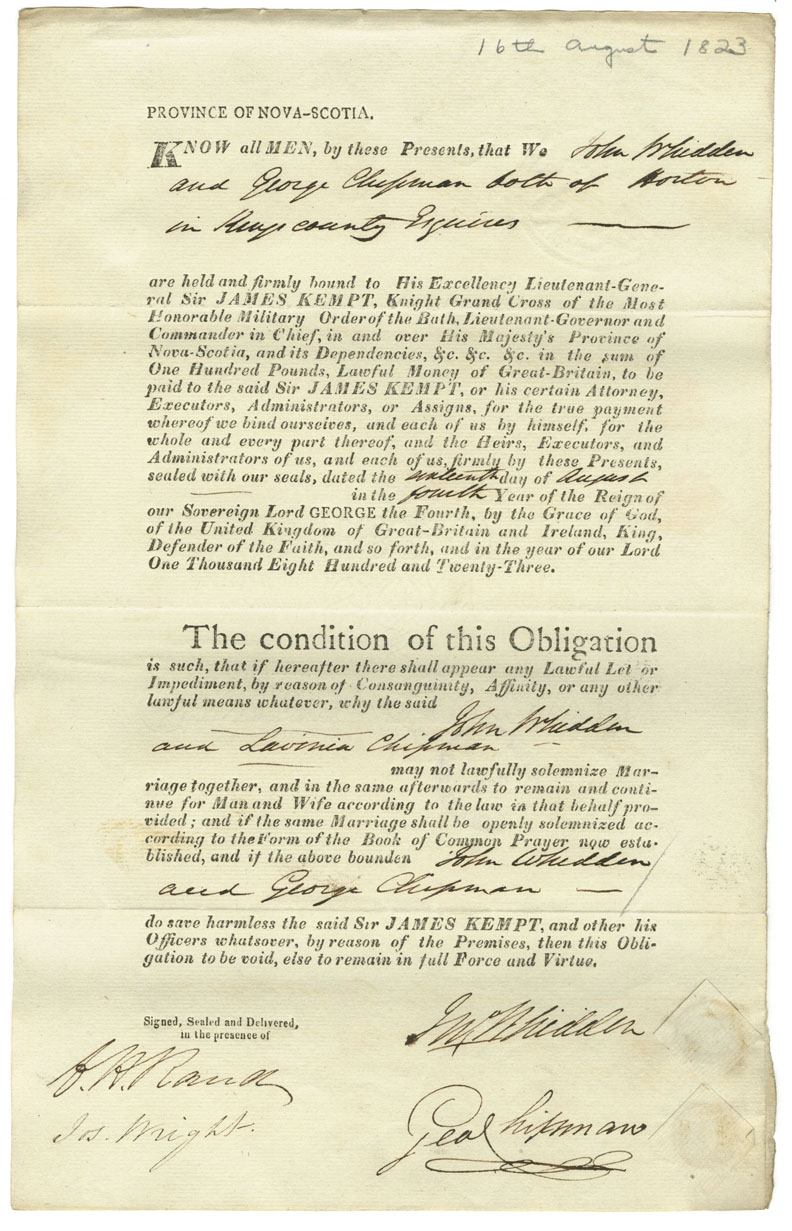 16th August 1823
PROVINCE OF NOVA-SCOTIA.
KNOW all MEN, by these Presents, that We John Whidden
and George Chipman both of Horton
in Kings county Esquires
are held and firmly bound to His Excellency Lieutenant-Gene-
ral Sir JAMES KEMPT, Knight Grand Cross of the Most
Honorable Military Order of the Bath, Lieutenant-Governor and
Commander in Chief, in and over His Majesty's Province of
Nova-Scotia, and its Dependencies, &c. &c. &c. in the sum of
One Hundred Pounds, Lawful Money of Great-Britain, to be
paid to the said Sir JAMES KEMPT, or his certain Attorney,
Executors, Administrators, or Assigns, for the true payment
whereof we bind ourselves, and each of us by himself, for the
whole and every part thereof, and the Heirs, Executors, and
Administrators of us, and each of us, firmly by these Presents,
sealed with our seals, dated the sixteenth day of August
in the fourth Year of the Reign of
our Sovereign Lord GEORGE the Fourth, by the Grace of God,
of the United Kingdom of Great-Britain and Ireland, King,
Defender of the Faith, and so forth, and in the year of our Lord
One Thousand Eight Hundred and Twenty-Three.
The condition of this Obligation
is such, that if hereafter there shall appear any Lawful Let or
Impediment, by reason of Consanguinity, Affinity, or any other
lawful means whatever, why the said
John Whidden
and Lavinia Chipman
may not lawfully solemnize Mar-
riage together, and in the same afterwards to remain and conti-
nue for Man and Wife according to the law in that behalf pro-
vided; and if the same Marriage shall be openly solemnized ac-
cording to the Form of the Book of Common Prayer now esta-
blished, and if the above bounden John Whidden
and George Chipman
do save harmless the said Sir JAMES KEMPT, and other his
Officers whatsover, by reason of the Premises, then this Obli-
gation to be void, else to remain in full Force and Virtue.
Signed, Sealed and Delivered,
in the presence of
Jno Whidden
H. H. Rand
Jos. Wright.
Geo Chipman